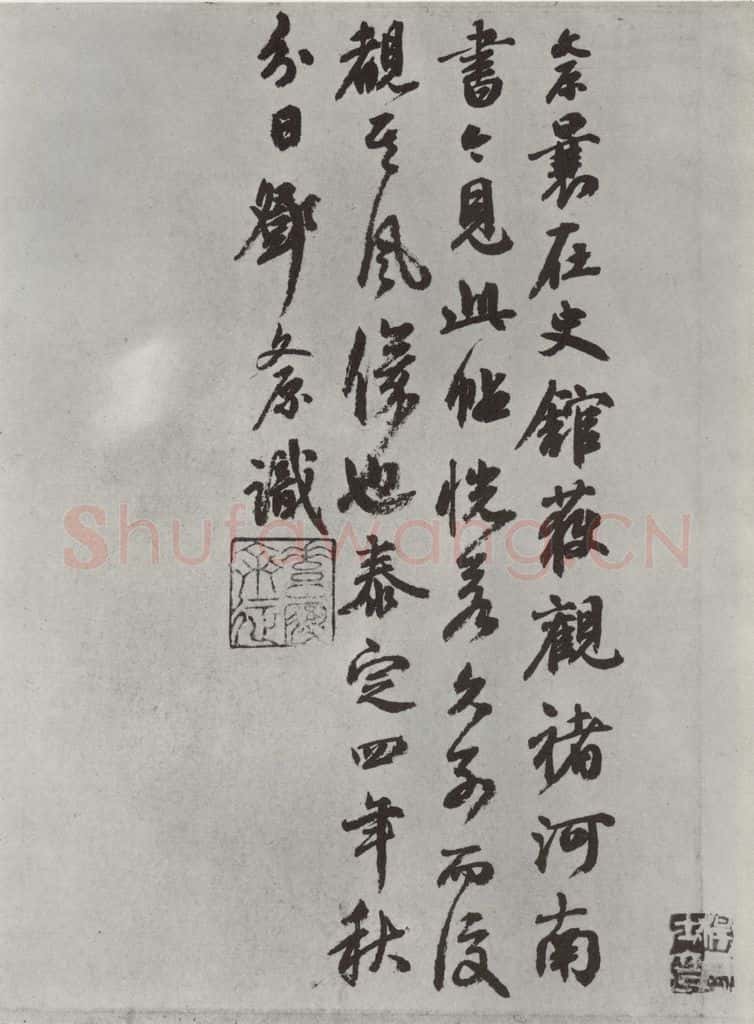 文原曩在史館获觀褚河南
書今見此帖恍若久别而復
覩其風儀也泰定四年秋
分日鄧文原識
Shufawang.CN